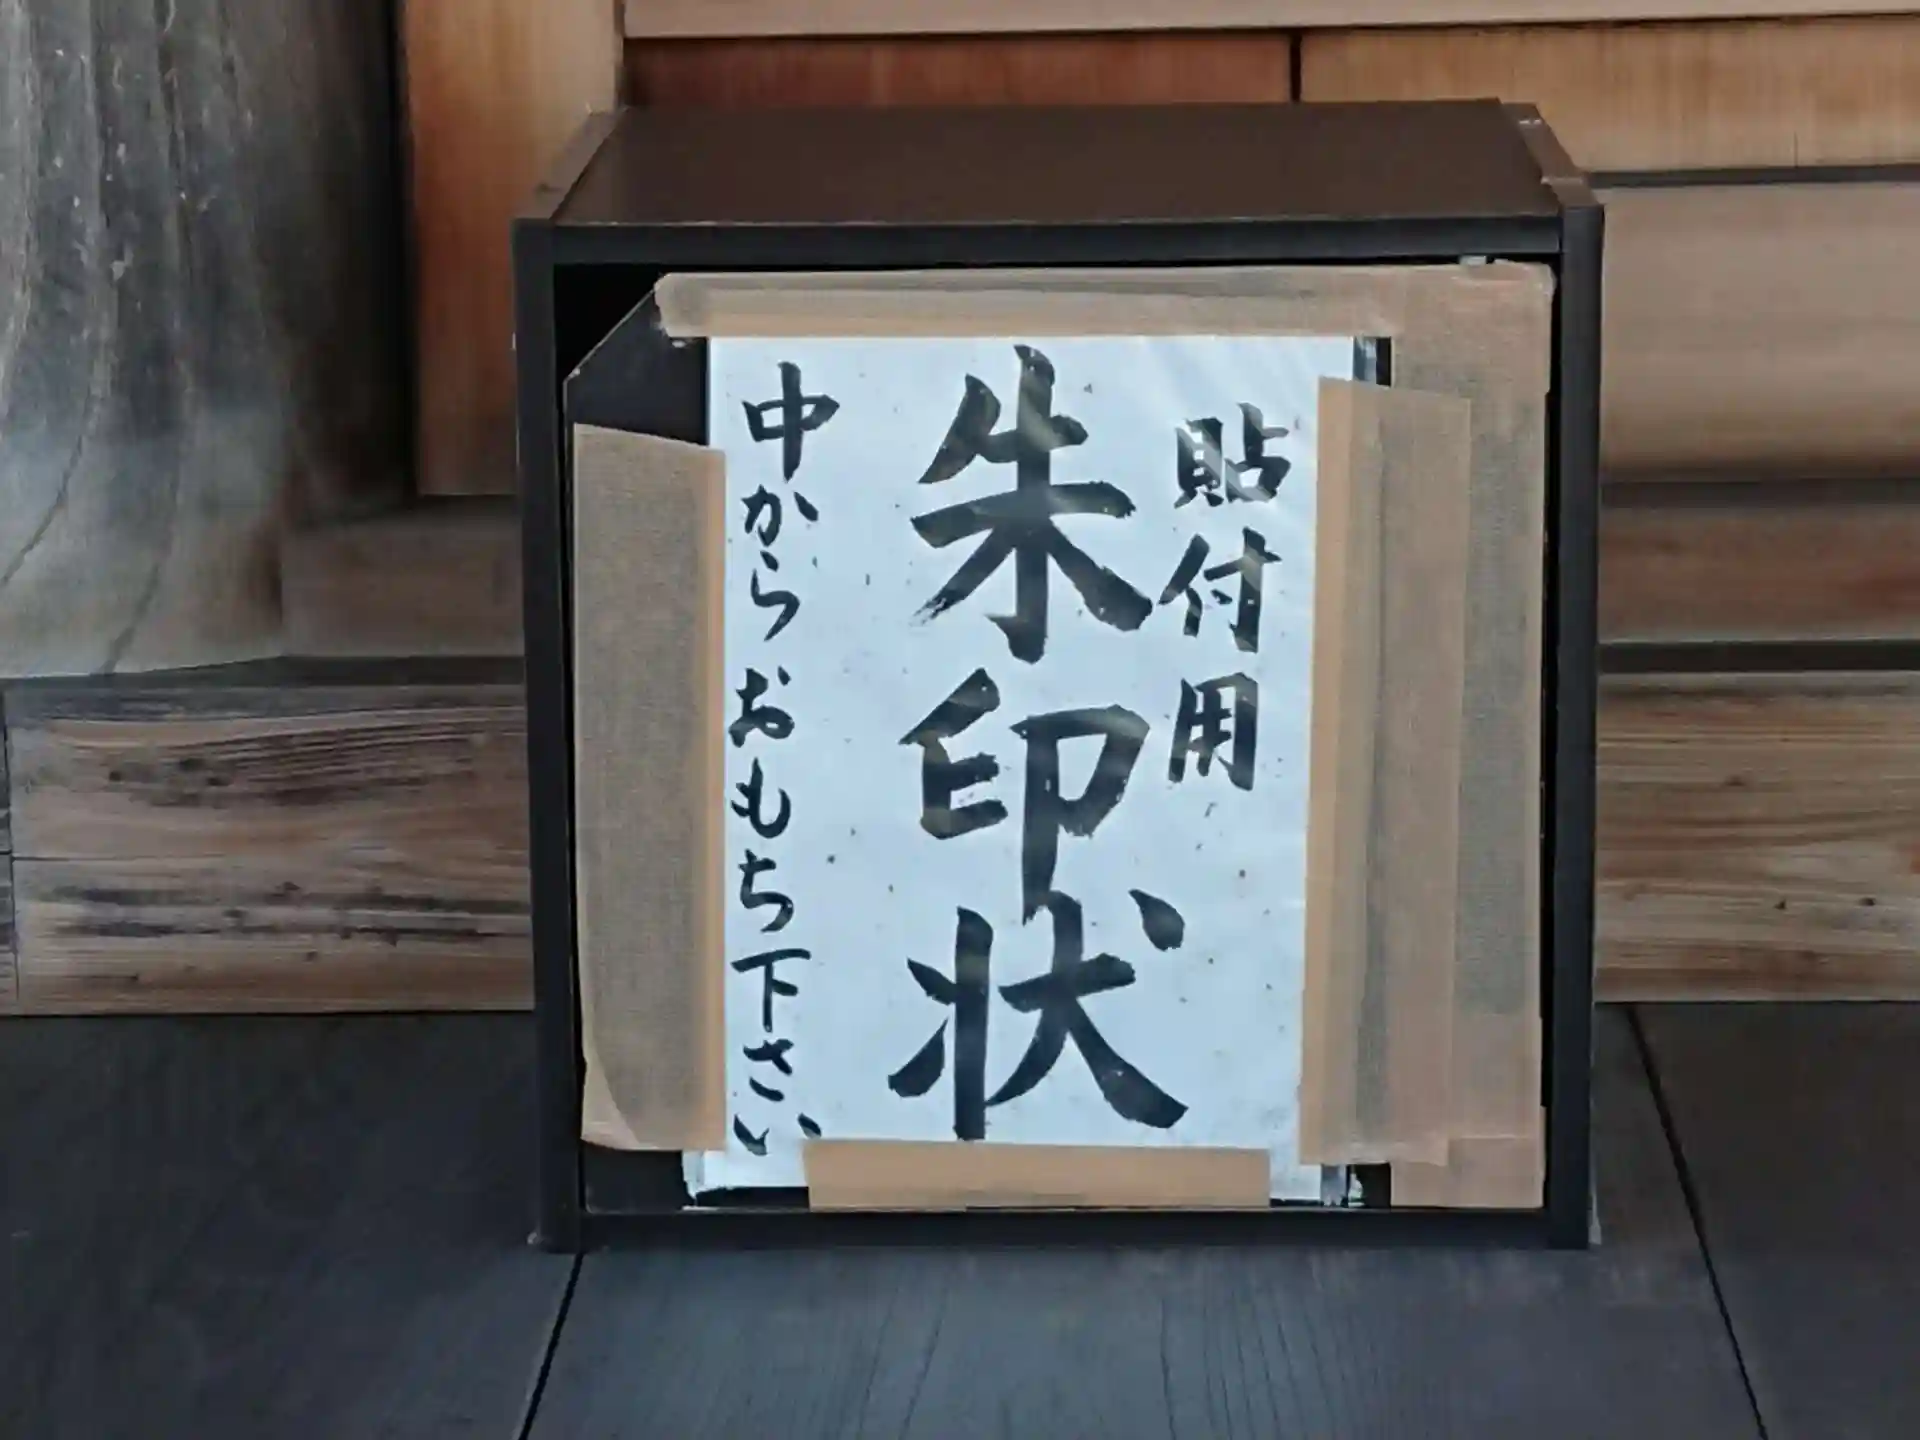 貼付用
朱印状
中からおもち下さい